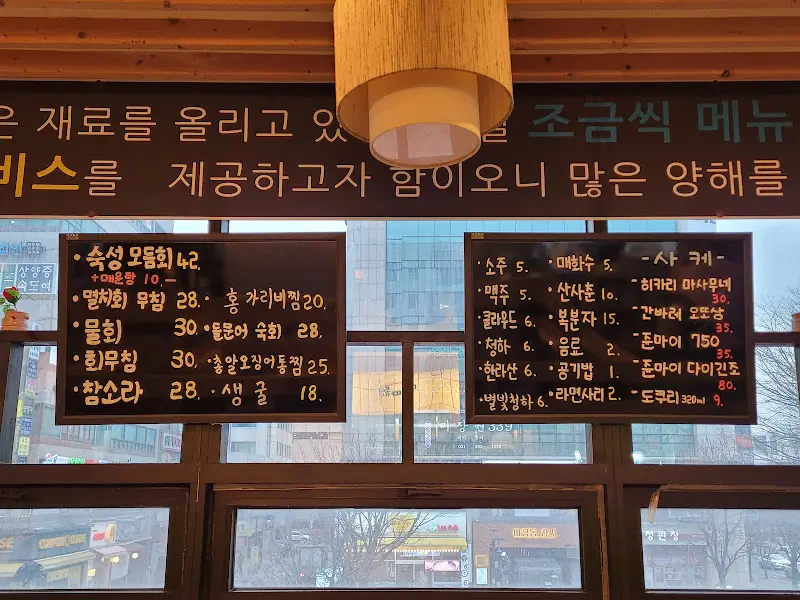 은 재료를 올리고 있 을 조금씩 메뉴
비스를 제공하고자 함이오니 많은 양해를
· 숙성 모듬회 42.
+매운탕 10.-
· 멸치회 무침 28.
· 물회 30.
· 회무침 30.
· 참소라 28.
· 홍 가리비찜 20.
· 돌문어 숙회 28.
· 총알오징어통찜 25.
· 생굴 18.
· 소주 5.
· 맥주 5.
· 클라우드 6.
· 청하 6.
· 한라산 6.
· 별빛청하 6.
· 매화수 5.
· 산사춘 10.
· 복분자 15.
· 음료 2.
· 공기밥 1.
· 라면사리 2.
- 사케 -
· 히카리 마사무네
30.
· 간바레 오또상
35.
· 준마이 750
35.
· 준마이 다이긴조
80.
· 도쿠리 320ml 9.
상양중
속도여
339
정관장